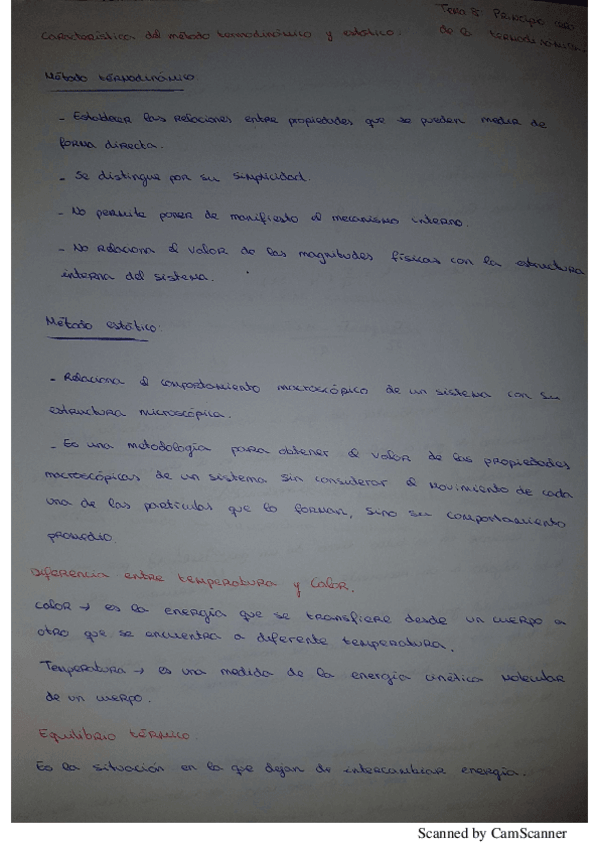 Tema 5: Principio cero
de la termodinámica.
Característica del método termodinámico y estático.
Método termodinámico.
- Establecer las relaciones entre propiedades que se pueden medir de
forma directa.
- Se distingue por su simplicidad.
- No permite poner de manifiesto el mecanismo interno.
- No relaciona el valor de las magnitudes físicas con la estructura
interna del sistema.
Método estático.
- Relaciona el comportamiento macroscópico de un sistema con su
estructura microscópica.
- Es una metodología para obtener el valor de las propiedades
macroscópicas de un sistema sin considerar el movimiento de cada
una de las partículas que lo forman, sino su comportamiento
promedio.
Diferencia entre temperatura y calor.
Calor → es la energía que se transfiere desde un cuerpo a
otro que se encuentra a diferente temperatura.
Temperatura → es una medida de la energía cinética molecular
de un cuerpo.
Equilibrio térmico.
Es la situación en la que dejan de intercambiar energía.
Scanned by CamScanner